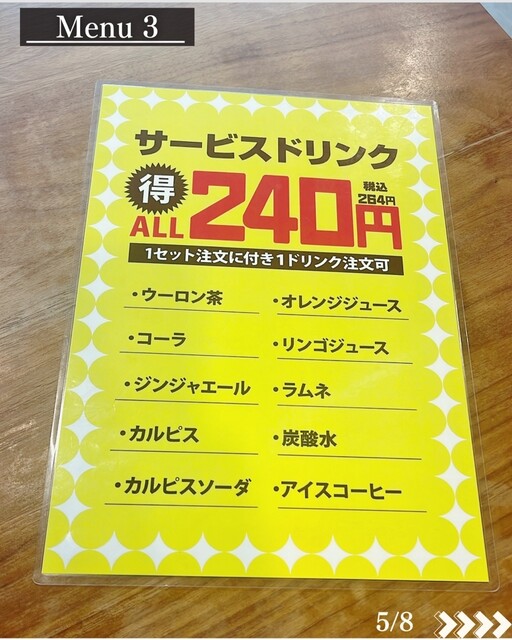 Menu 3
サービスドリンク
得
ALL 240円
税込
264円
1セット注文に付き1ドリンク注文可
・ウーロン茶
・オレンジジュース
・コーラ
・リンゴジュース
・ジンジャエール
・ラムネ
・カルピス
・炭酸水
・カルピスソーダ
・アイスコーヒー
5/8